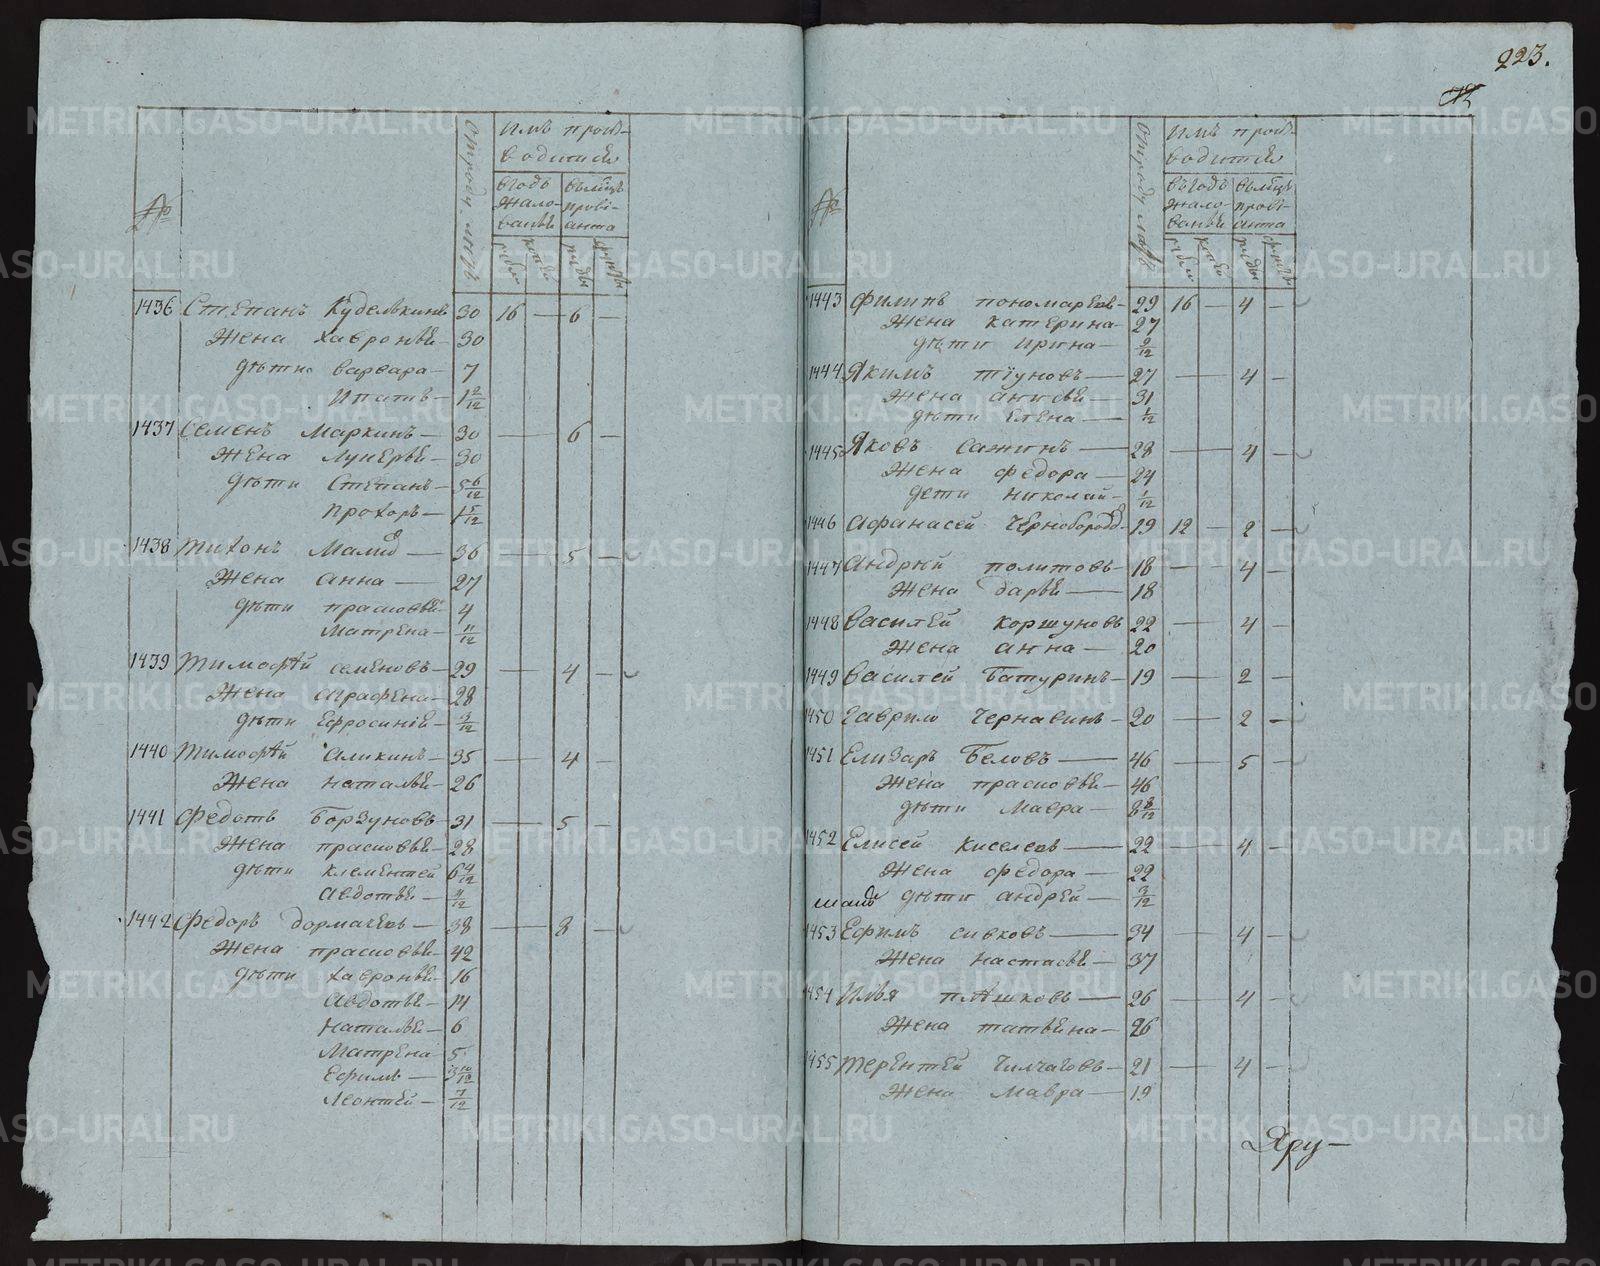 №
Отроду летъ
Имъ произ-
водится
вгодъ жало-
ванья
вмесяцъ прові-
анта
рубли
копей
пуды
фунты
1436 Степанъ Куделькинъ 30 16 — 6 —
Жена Хавронья — 30
дети Варвара — 7
Ипатъ — 1 2/12
1437 Семенъ Маркинъ — 30 — 6 —
Жена Лукерья — 30
дети Степанъ — 5 6/12
Прохоръ — 1 5/12
1438 Тихонъ — 36 — 5 —
Жена Анна — 27
дѣти Прасковья 4
Матрена — 11/12
1439 Тимофѣй Семеновъ — 29 — 4 —
Жена Аграфена — 28
дѣти Ефросиніе — 3/12
1440 Тимофѣй Аликинъ — 35 — 4 —
Жена Наталья — 26
1441 Федотъ Борзуновъ — 31 — 5 —
Жена Прасковья — 28
дѣти Клементей 6 4/12
Авдотья — 4/12
1442 Федоръ Дормачевъ — 38 — 8 —
Жена Прасковья — 42
дѣти Хавронья — 16
Авдотья — 14
Наталья — 6
Матрена 5
Ефимъ — 3 10/12
Леонтей — 7/12
223.
№
Отроду летъ
Имъ произ-
водится
въгодъ жало-
ванья
вмесяцъ прові-
анта
рубли
копей
пуды
фунты
1443 Филипъ Пономаревъ — 29 16 — 4 —
Жена Катерина — 27
дѣти Ирина — 9/12
1444 Якимъ Тіуновъ — 27 — 4 —
Жена Анисья — 31
дѣти Елена — 1/12
1445 Яковъ Сажинъ — 28 — 4 —
Жена Федора — 24
дети Николай — 1/12
1446 Афанасей Чернобородов — 19 12 — 2 —
1447 Андрей Политовъ — 18 — 4 —
Жена Дарья — 18
1448 Василей Коршуновъ 22 — 4 —
Жена Анна — 20
1449 Василей Батуринъ — 19 — 2 —
1450 Гаврило Чернавинъ — 20 — 2 —
1451 Елизаръ Беловъ — 46 — 5 —
Жена Прасковья — 46
дѣти Мавра — 8 8/12
1452 Елисей Киселевъ — 22 — 4 —
Жена Федора — 22
дѣти Андрей — 3/12
1453 Ефимъ Сивковъ — 34 — 4 —
Жена Настасья — 37
1454 Илья Плѣшковъ — 26 — 4 —
Жена Татьяна — 26
1455 Терентей Чимчаговъ — 21 — 4 —
Жена Мавра — 19
Дру —
METRIKI.GASO-URAL.RU